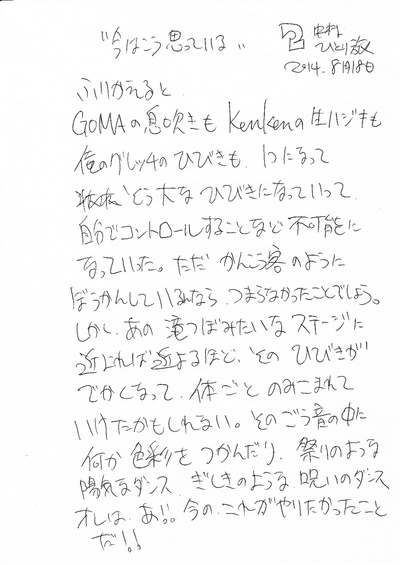 "今はこう思っている"
中村
ひとり数
2014.8月18日
ふりかえると
GOMAの息吹きも Kenkenの生ハジキも
俺のグレッチのひびきも、1つになって
どう大な ひびきになっていって
自分でコントロールすることなど不可能に
なっていった。ただ かんこう客のように
ぼうかんしているなら、つまらなかったことでしょう。
しかし、あの 滝つぼみたいな ステージに
近よれば近よるほど、その ひびきが
でかくなって、体ごと のみこまれて
いけたかもしれない。そのごう音の中に
何か 色彩を つかんだり、祭りのような
陽気なダンス、ぎしきのような 呪いのダンス
オレは、あ!! 今の、これがやりたかったこと
だ!!